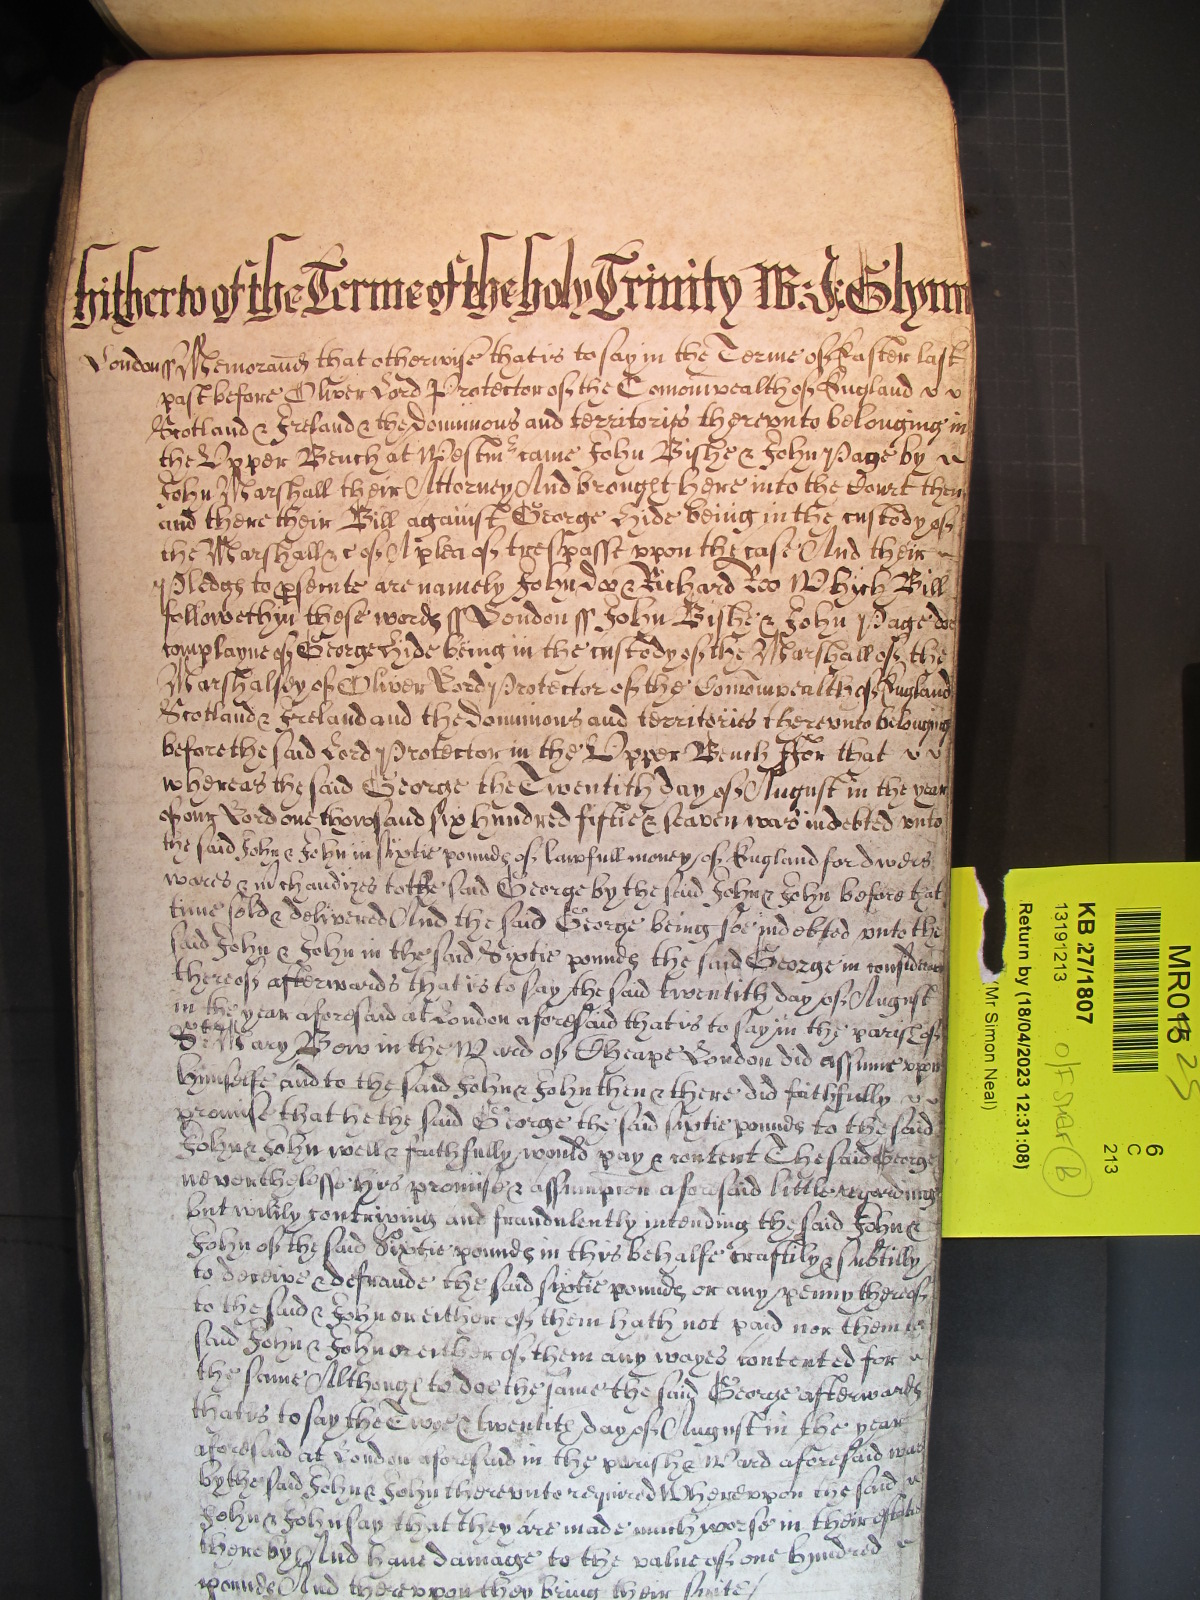 hitherto of the Terme of the holy Trinity W: J: Glynn
London ss Memorand that otherwise that is to say in the Terme of Easter last
past before Oliver Lord Protector of the Comonwealth of England
Scotland & Ireland & the dominions and territories therevnto belonging in
the Vpper Bench at Westmr came John Bishe & John Page by
John Marshall their Attorney And brought here into the Court then
and there their Bill against George Hide being in the custody of
the Marshall &c of A plea of trespasse vppon the case And their
Pledges to psecute are namely John Doo & Richard Roo Which Bill
followeth in these words ss London ss John Bishe & John Page doe
complayne of George Hide being in the custody of the Marshall of the
Marshalsey of Oliver Lord Protector of the Comonwealth of England
Scotland & Ireland and the dominions and territories therevnto belonging
before the said Lord Protector in the Vpper Bench ffor that
whereas the said George the Twentith day of August in the year
of our Lord one thowsand six hundred fiftie & seaven was indebted vnto
the said John & John in sixtie pounds of lawfull money of England for divers
wares & mchandizes to the said George by the said John & John before that
time sold & delivered And the said George being soe indebted vnto the
said John & John in the said Sixtie pounds the said George in consideracon
thereof afterwards that is to say the said twentith day of August
in the year aforesaid at London aforesaid that is to say in the parish of
St Mary Bow in the Ward of Cheape London did assume vpon
himselfe and to the said John & John then & there did faithfully
promise that he the said George the said sixtie pounds to the said
John & John well & faithfully would pay & content The said George
nevertheless his promise & assumpcion aforesaid little regarding
but wilily contriving and fraudulently intending the said John &
John of the said Sixtie pounds in this behalfe craftily & subtilly
to deceive & defraude the said sixtie pounds or any penny thereof
to the said & John or either of them hath not paid nor them the
said John & John or either of them any wayes contented for
the same Although to doe the same the said George afterwards
that is to say the Twoe & twentith day of August in the year
aforesaid at London aforesaid in the parish & Ward aforesaid was
by the said John & John therevnto required Wherevppon the said
John & John say that they are made much worse in their estates
thereby And have damage to the value of one hundred
pounds And therevppon they bring their suite
MR013
25
6
C
213
KB 27/1807
13191213
o/f SHarf (B)
Return by (18/04/2023 12:31:08)
(Mr Simon Neal)